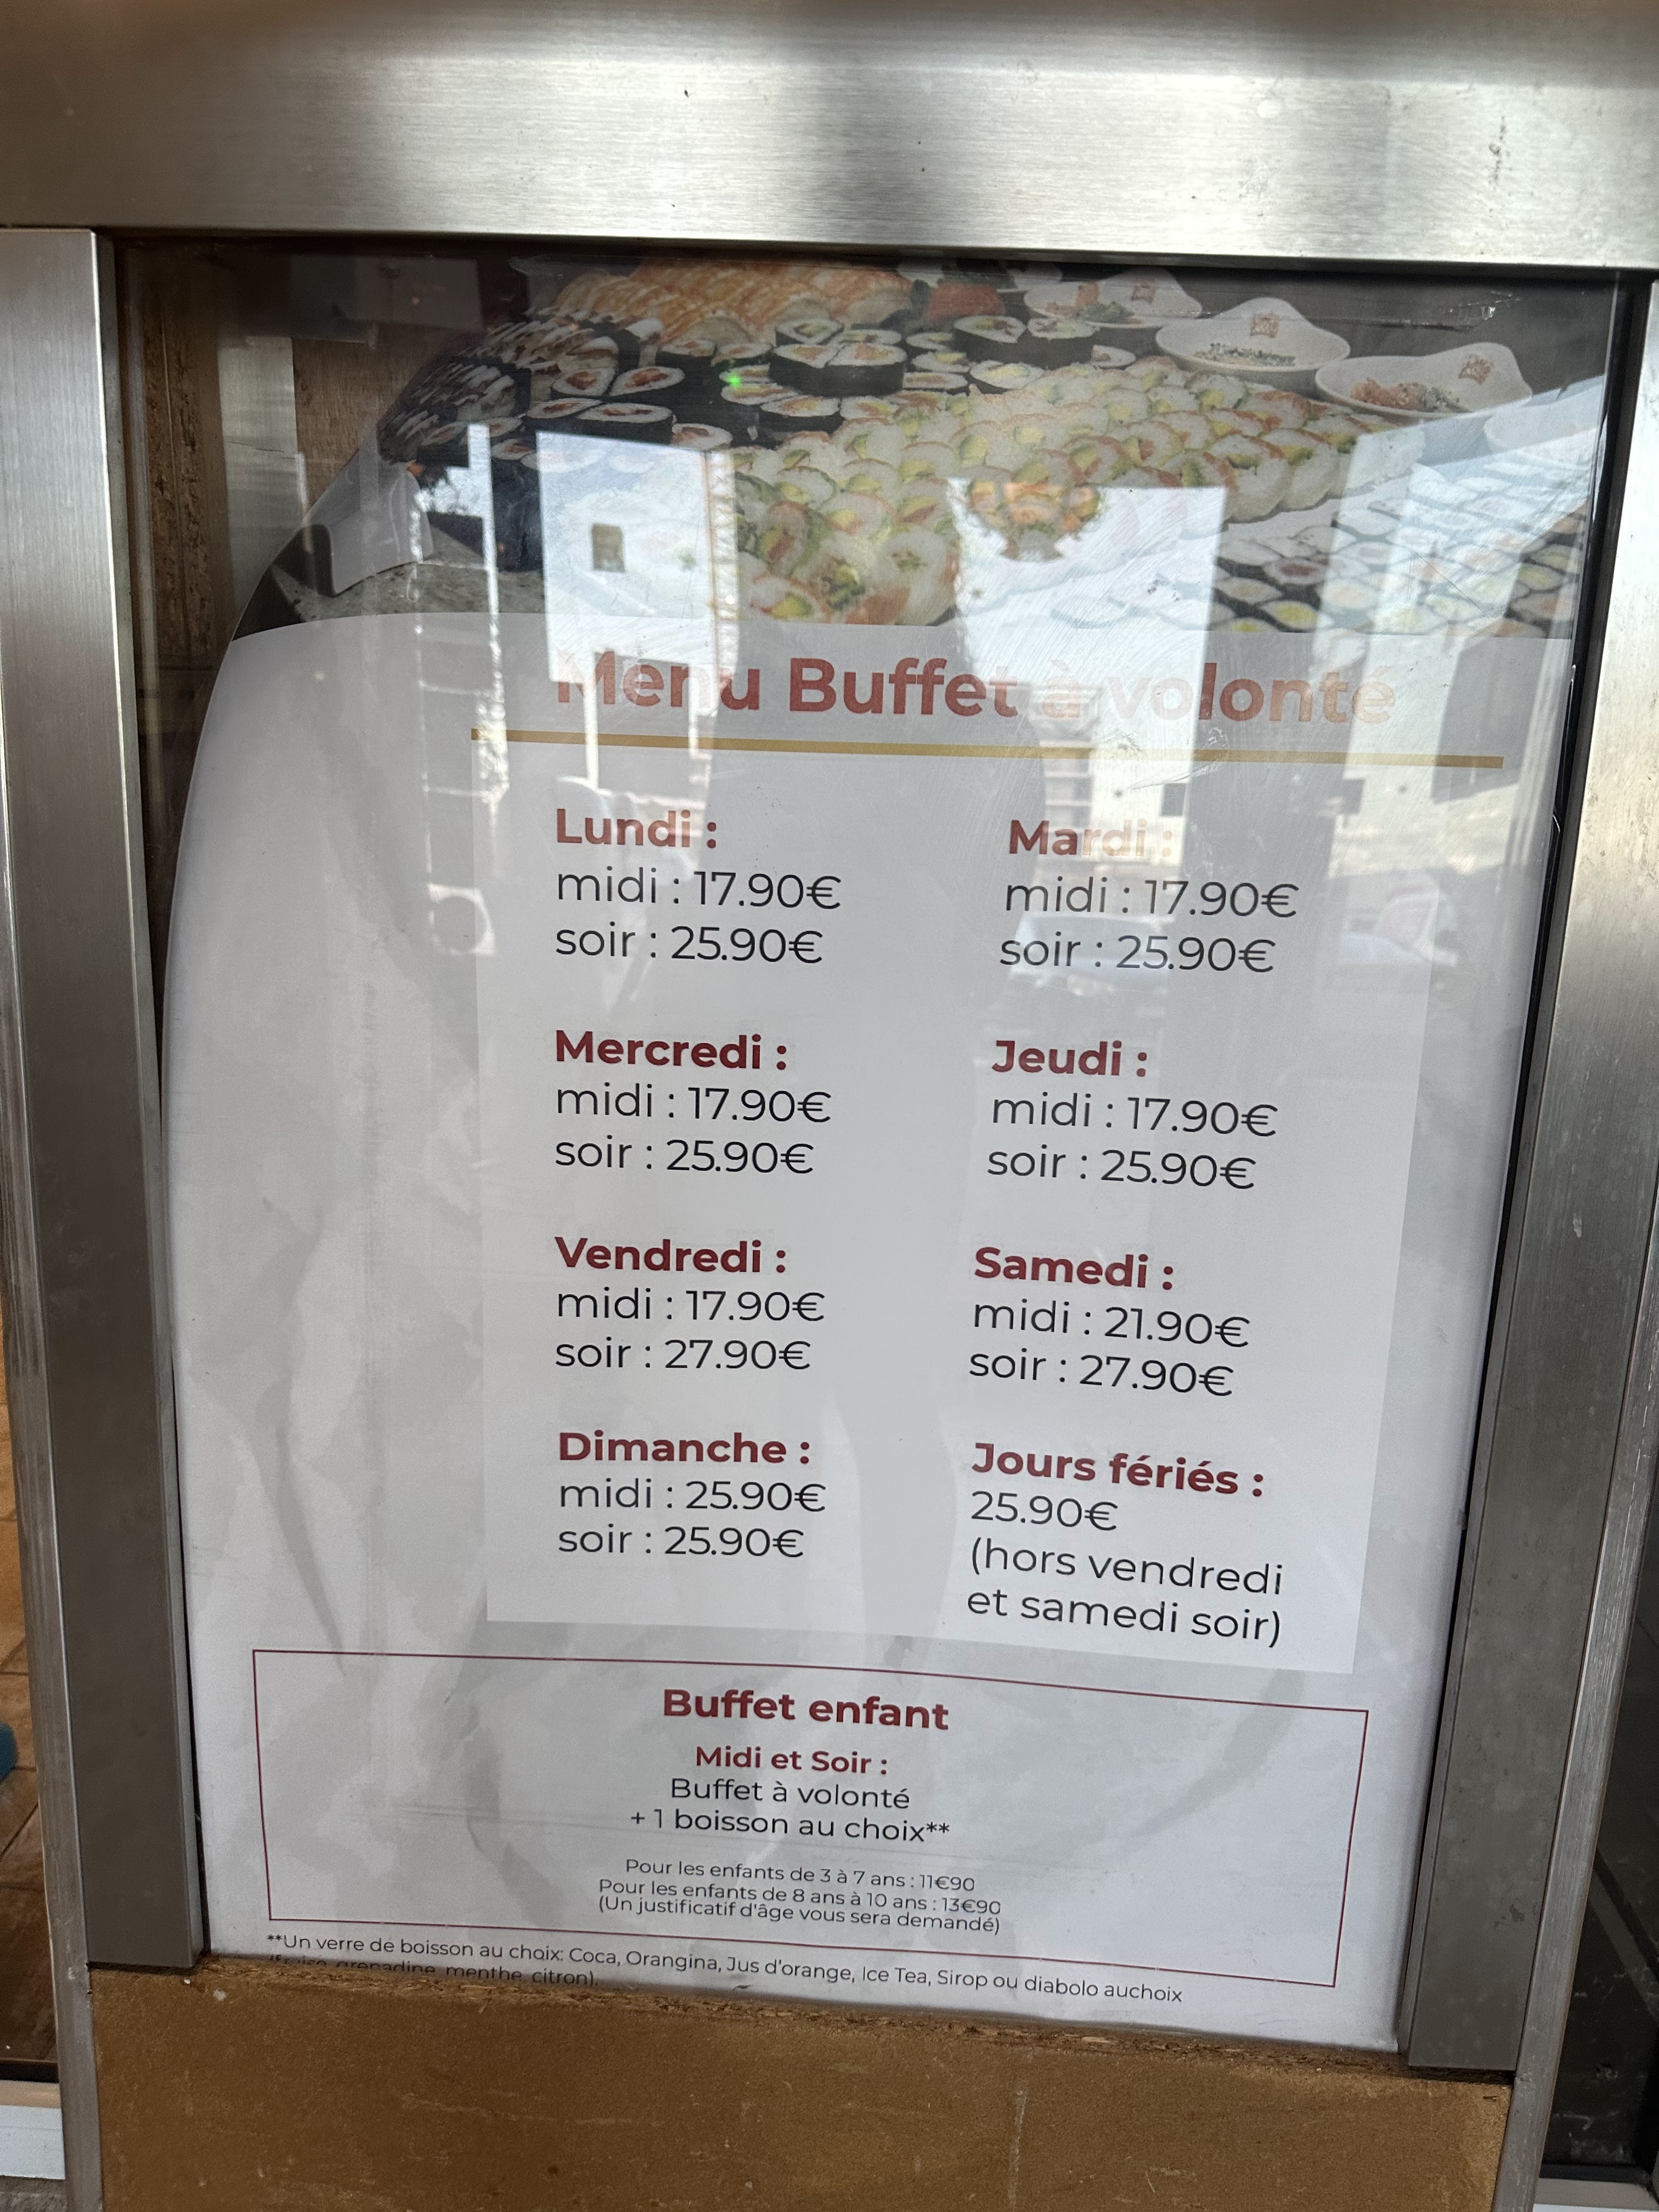 Menu Buffet à volonté
Lundi :
midi : 17.90€
soir : 25.90€
Mardi :
midi : 17.90€
soir : 25.90€
Mercredi :
midi : 17.90€
soir : 25.90€
Jeudi :
midi : 17.90€
soir : 25.90€
Vendredi :
midi : 17.90€
soir : 27.90€
Samedi :
midi : 21.90€
soir : 27.90€
Dimanche :
midi : 25.90€
soir : 25.90€
Jours fériés :
25.90€
(hors vendredi
et samedi soir)
Buffet enfant
Midi et Soir :
Buffet à volonté
+ 1 boisson au choix**
Pour les enfants de 3 à 7 ans : 11€90
Pour les enfants de 8 ans à 10 ans : 13€90
(Un justificatif d'âge vous sera demandé)
**Un verre de boisson au choix: Coca, Orangina, Jus d'orange, Ice Tea, Sirop ou diabolo auchoix
(fraise, grenadine, menthe, citron).